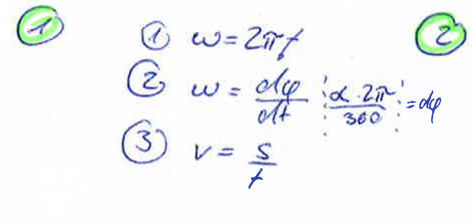 1
① ω = 2πf
2
② ω = dφ/dt α · 2π/360 = dφ
③ v = s/t